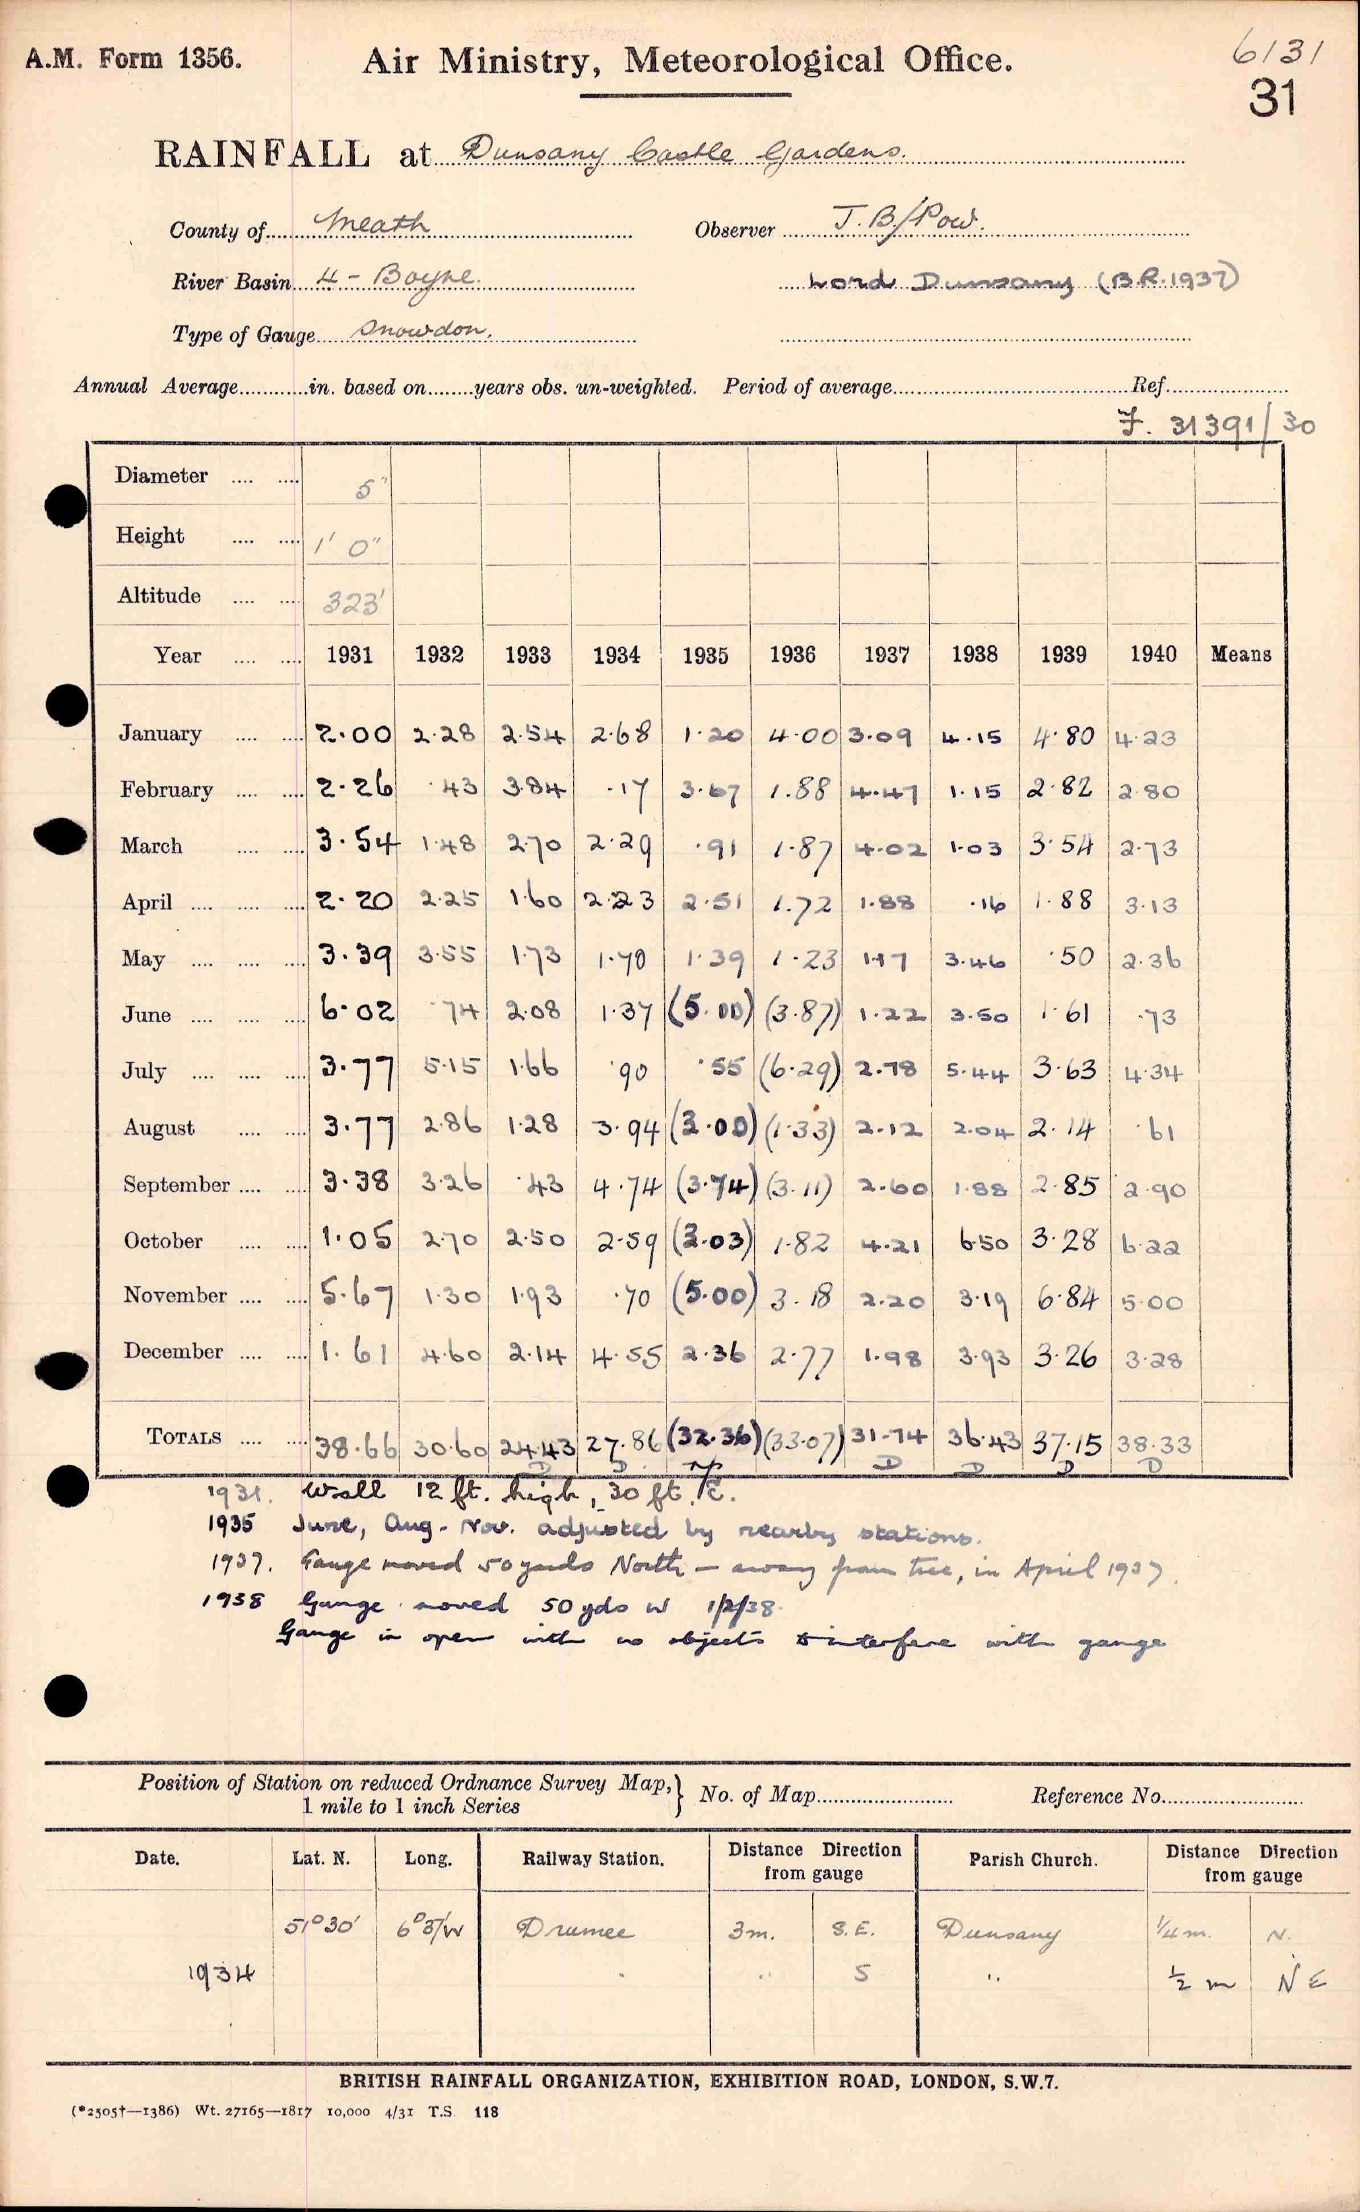 A.M. Form 1356.
Air Ministry, Meteorological Office.
6131
31
RAINFALL at Dunsany Castle Gardens.
County of Meath Observer J. B. Pow.
River Basin 4 - Boyne. Lord Dunsany (B.R. 1937)
Type of Gauge Snowdon.
Annual Average in. based on years obs. un-weighted. Period of average Ref.
F. 31391/30
Diameter 5"
Height 1' 0"
Altitude 323'
Year 1931 1932 1933 1934 1935 1936 1937 1938 1939 1940 Means
January 2.00 2.28 2.54 2.68 1.20 4.00 3.09 4.15 4.80 4.23
February 2.26 .43 3.84 .17 3.67 1.88 4.47 1.15 2.82 2.80
March 3.54 1.48 2.70 2.29 .91 1.87 4.02 1.03 3.54 2.73
April 2.20 2.25 1.60 2.23 2.51 1.72 1.88 .16 1.88 3.13
May 3.39 3.55 1.73 1.70 1.39 1.23 1.17 3.46 .50 2.36
June 6.02 .74 2.08 1.37 (5.00) (3.87) 1.22 3.50 1.61 .73
July 3.77 5.15 1.66 .90 .55 (6.29) 2.78 5.44 3.63 4.34
August 3.77 2.86 1.28 3.94 (3.00) (1.33) 2.12 2.04 2.14 .61
September 3.38 3.26 .43 4.74 (3.74) (3.11) 2.60 1.88 2.85 2.90
October 1.05 2.70 2.50 2.59 (3.03) 1.82 4.21 6.50 3.28 6.22
November 5.67 1.30 1.93 .70 (5.00) 3.18 2.20 3.19 6.84 5.00
December 1.61 4.60 2.14 4.55 2.36 2.77 1.98 3.93 3.26 3.28
TOTALS 38.66 30.60 24.43 27.86 (32.36) (33.07) 31.74 36.43 37.15 38.33
D D D D D D
1931. Wall 12 ft. high, 30 ft. E.
1935 June, Aug. - Nov. adjusted by nearby stations.
1937. Gauge moved 50 yards North - away from tree, in April 1937.
1938 Gauge moved 50 yds W 1/2/38.
Gauge in open with no objects to interfere with gauge
Position of Station on reduced Ordnance Survey Map, 1 mile to 1 inch Series } No. of Map Reference No.
Date. Lat. N. Long. Railway Station. Distance Direction from gauge Parish Church. Distance Direction from gauge
51°30' 6°37'W Drumee 3m. S.E. Dunsany 1/4 m. N.
1934 " " S " 1/2 m NE
BRITISH RAINFALL ORGANIZATION, EXHIBITION ROAD, LONDON, S.W.7.
(*2505†—1386) Wt. 27165—1817 10,000 4/31 T.S. 118